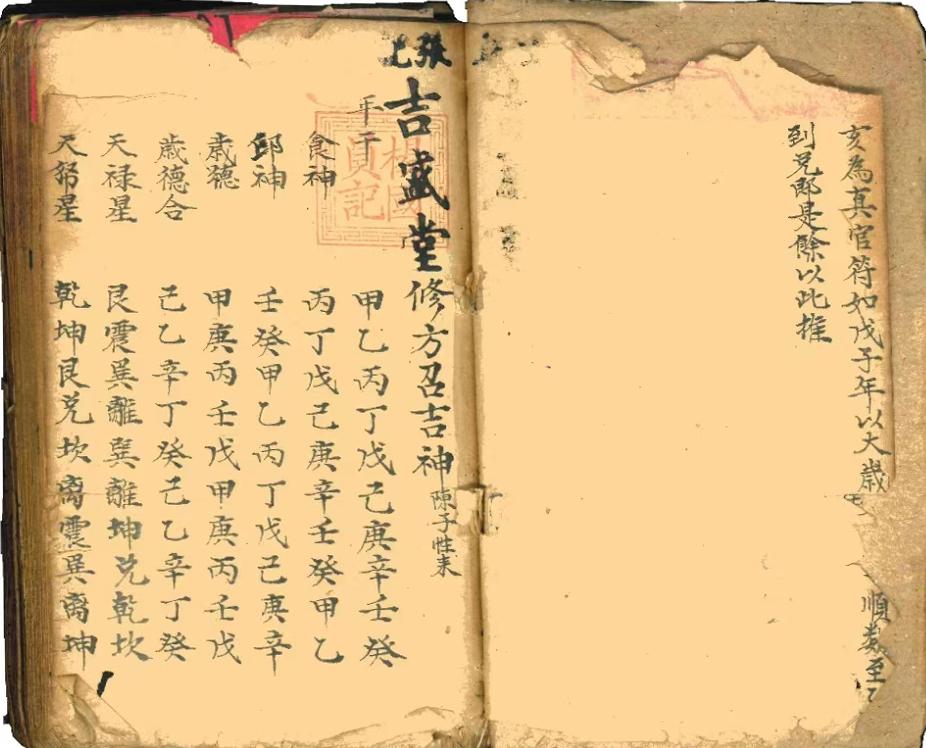 亥為真官符如戊子年以大歲順数至
到兄郎是餘以此推
張
吉盛堂修方召吉神陳子性末
年干 甲乙丙丁戊己庚辛壬癸
食神 丙丁戊己庚辛壬癸甲乙
卹神 壬癸甲乙丙丁戊己庚辛
歲德 甲庚丙壬戊甲庚丙壬戊
歲德合 己乙辛丁癸己乙辛丁癸
天禄星 艮震巽離巽離坤兑乾坎
天帑星 乾坤艮兑坎离震巽离坤
楊國
貞記